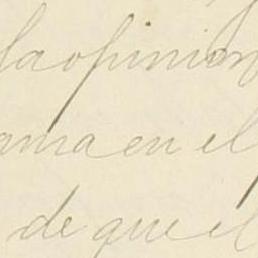 la opinion
ama en el
de que el